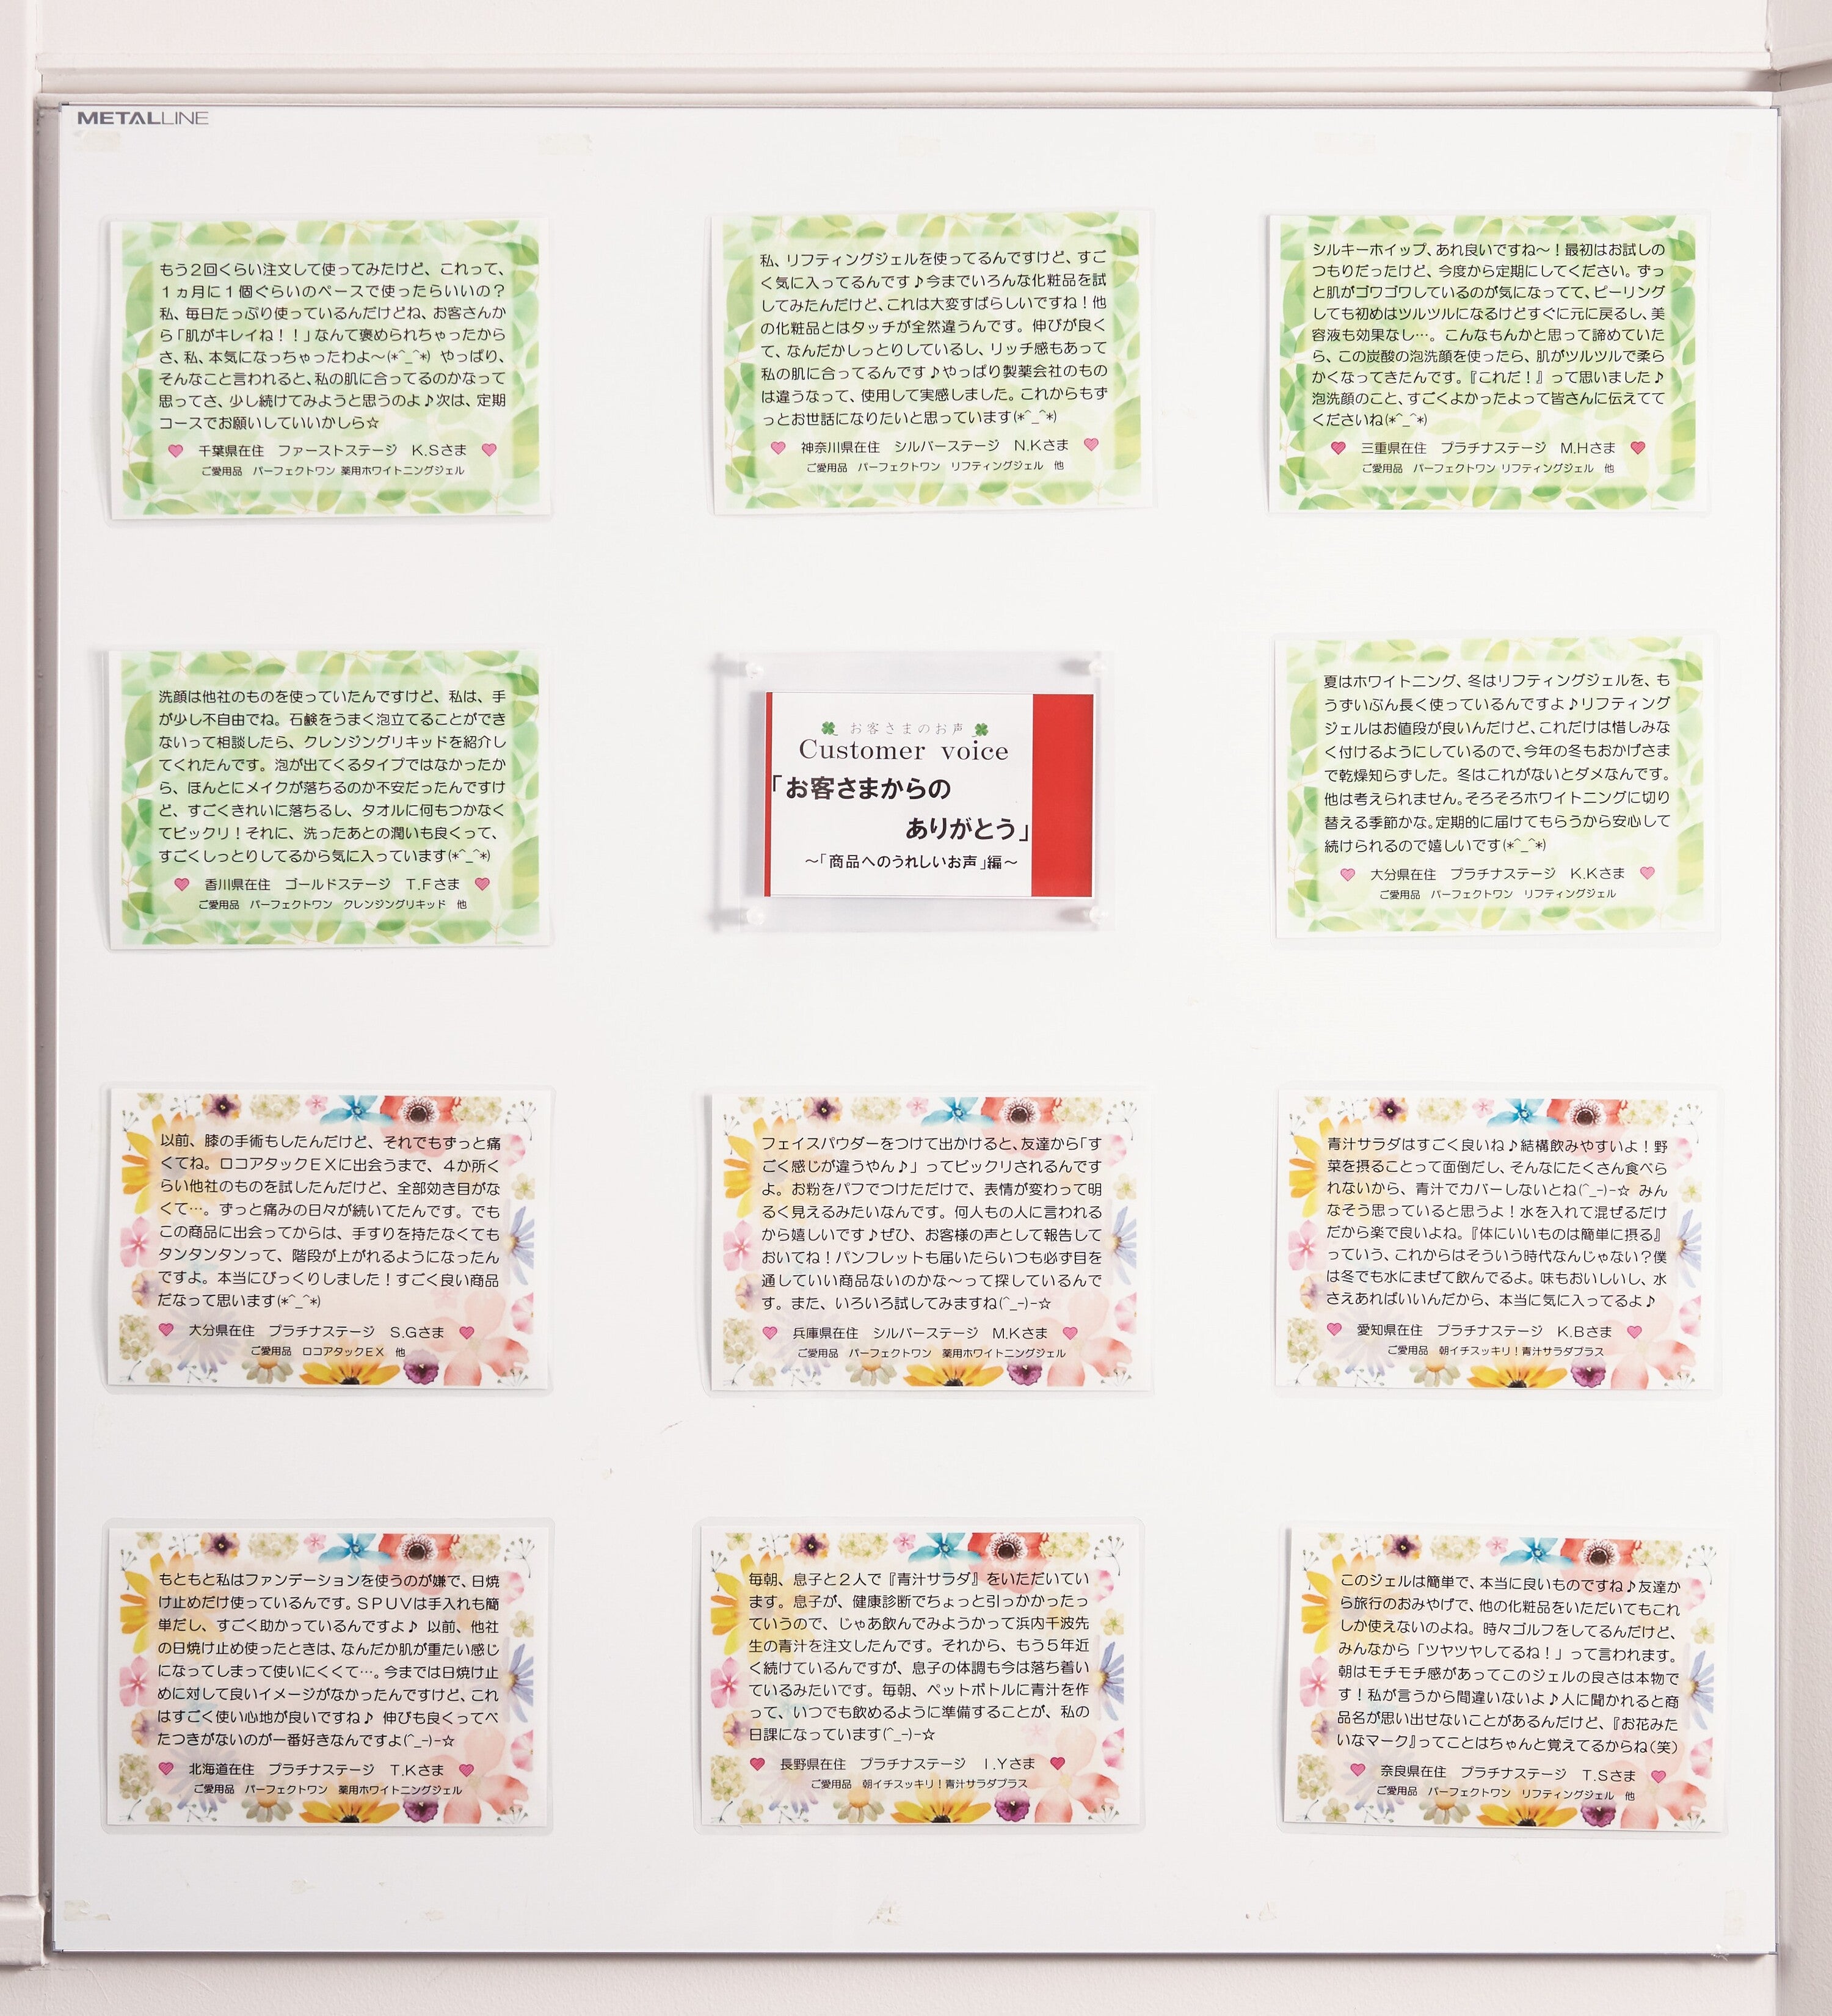 METALLINE
もう2回くらい注文して使ってみたけど、これって、
1ヵ月に1個ぐらいのペースで使ったらいいの?
私、毎日たっぷり使っているんだけどね、お客さんか
ら「肌がキレイね!!」なんて褒められちゃったから
さ、私、本気になっちゃったわよ〜(*^_^*) やっぱり、
そんなこと言われると、私の肌に合ってるのかなって
思ってさ、少し続けてみようと思うのよ♪次は、定期
コースでお願いしていいかしら☆
千葉県在住 ファーストステージ K.Sさま
ご愛用品 パーフェクトワン 薬用ホワイトニングジェル
私、リフティングジェルを使ってるんですけど、すご
く気に入ってるんです♪今までいろんな化粧品を試
してみたんだけど、これは大変すばらしいですね!他
の化粧品とはタッチが全然違うんです。伸びが良く
て、なんだかしっとりしているし、リッチ感もあって
私の肌に合ってるんです♪やっぱり製薬会社のもの
は違うなって、使用して実感しました。これからもず
っとお世話になりたいと思っています(*^_^*)
神奈川県在住 シルバーステージ N.Kさま
ご愛用品 パーフェクトワン リフティングジェル 他
シルキーホイップ、あれ良いですね〜!最初はお試しの
つもりだったけど、今度から定期にしてください。ずっ
と肌がゴワゴワしているのが気になってて、ピーリング
しても初めはツルツルになるけどすぐに元に戻るし、美
容液も効果なし…。こんなもんかと思って諦めていた
ら、この炭酸の泡洗顔を使ったら、肌がツルツルで柔ら
かくなってきたんです。『これだ!』って思いました♪
泡洗顔のこと、すごくよかったよって皆さんに伝えてて
くださいね(*^_^*)
三重県在住 プラチナステージ M.Hさま
ご愛用品 パーフェクトワン リフティングジェル 他
洗顔は他社のものを使っていたんですけど、私は、手
が少し不自由でね。石鹸をうまく泡立てることができ
ないって相談したら、クレンジングリキッドを紹介し
てくれたんです。泡が出てくるタイプではなかったか
ら、ほんとにメイクが落ちるのか不安だったんですけ
ど、すごくきれいに落ちるし、タオルに何もつかなく
てビックリ!それに、洗ったあとの潤いも良くって、
すごくしっとりしてるから気に入っています(*^_^*)
香川県在住 ゴールドステージ T.Fさま
ご愛用品 パーフェクトワン クレンジングリキッド 他
お客さまのお声
Customer voice
「お客さまからの
ありがとう」
〜「商品へのうれしいお声」編〜
夏はホワイトニング、冬はリフティングジェルを、も
うずいぶん長く使っているんですよ♪リフティング
ジェルはお値段が良いんだけど、これだけは惜しみな
く付けるようにしているので、今年の冬もおかげさま
で乾燥知らずした。冬はこれがないとダメなんです。
他は考えられません。そろそろホワイトニングに切り
替える季節かな。定期的に届けてもらうから安心して
続けられるので嬉しいです(*^_^*)
大分県在住 プラチナステージ K.Kさま
ご愛用品 パーフェクトワン リフティングジェル
以前、膝の手術もしたんだけど、それでもずっと痛
くてね。ロコアタックEXに出会うまで、4か所く
らい他社のものを試したんだけど、全部効き目がな
くて…。ずっと痛みの日々が続いてたんです。でも
この商品に出会ってからは、手すりを持たなくても
タンタンタンって、階段が上がれるようになったん
ですよ。本当にびっくりしました!すごく良い商品
だなって思います(*^_^*)
大分県在住 プラチナステージ S.Gさま
ご愛用品 ロコアタックEX 他
フェイスパウダーをつけて出かけると、友達から「す
ごく感じが違うやん♪」ってビックリされるんです
よ。お粉をパフでつけただけで、表情が変わって明
るく見えるみたいなんです。何人もの人に言われる
から嬉しいです♪ぜひ、お客様の声として報告して
おいてね!パンフレットも届いたらいつも必ず目を
通していい商品ないのかな〜って探しているんで
す。また、いろいろ試してみますね(^_-)-☆
兵庫県在住 シルバーステージ M.Kさま
ご愛用品 パーフェクトワン 薬用ホワイトニングジェル
青汁サラダはすごく良いね♪結構飲みやすいよ!野
菜を摂ることって面倒だし、そんなにたくさん食べら
れないから、青汁でカバーしないとね(^_-)-☆ みん
なそう思っていると思うよ!水を入れて混ぜるだけ
だから楽で良いよね。『体にいいものは簡単に摂る』
っていう、これからはそういう時代なんじゃない?僕
は冬でも水にまぜて飲んでるよ。味もおいしいし、水
さえあればいいんだから、本当に気に入ってるよ♪
愛知県在住 プラチナステージ K.Bさま
ご愛用品 朝イチスッキリ!青汁サラダプラス
もともと私はファンデーションを使うのが嫌で、日焼
け止めだけ使っているんです。SPUVは手入れも簡
単だし、すごく助かっているんですよ♪ 以前、他社
の日焼け止め使ったときは、なんだか肌が重たい感じ
になってしまって使いにくくて…。今までは日焼け止
めに対して良いイメージがなかったんですけど、これ
はすごく使い心地が良いですね♪ 伸びも良くってべ
たつきがないのが一番好きなんですよ(^_-)-☆
北海道在住 プラチナステージ T.Kさま
ご愛用品 パーフェクトワン 薬用ホワイトニングジェル
毎朝、息子と2人で『青汁サラダ』をいただいてい
ます。息子が、健康診断でちょっと引っかかったっ
ていうので、じゃあ飲んでみようかって浜内千波先
生の青汁を注文したんです。それから、もう5年近
く続けているんですが、息子の体調も今は落ち着い
ているみたいです。毎朝、ペットボトルに青汁を作
って、いつでも飲めるように準備することが、私の
日課になっています(^_-)-☆
長野県在住 プラチナステージ I.Yさま
ご愛用品 朝イチスッキリ!青汁サラダプラス
このジェルは簡単で、本当に良いものですね♪友達か
ら旅行のおみやげで、他の化粧品をいただいてもこれ
しか使えないのよね。時々ゴルフをしてるんだけど、
みんなから「ツヤツヤしてるね!」って言われます。
朝はモチモチ感があってこのジェルの良さは本物で
す!私が言うから間違いないよ♪人に聞かれると商
品名が思い出せないことがあるんだけど、『お花みた
いなマーク』ってことはちゃんと覚えてるからね(笑)
奈良県在住 プラチナステージ T.Sさま
ご愛用品 パーフェクトワン リフティングジェル 他